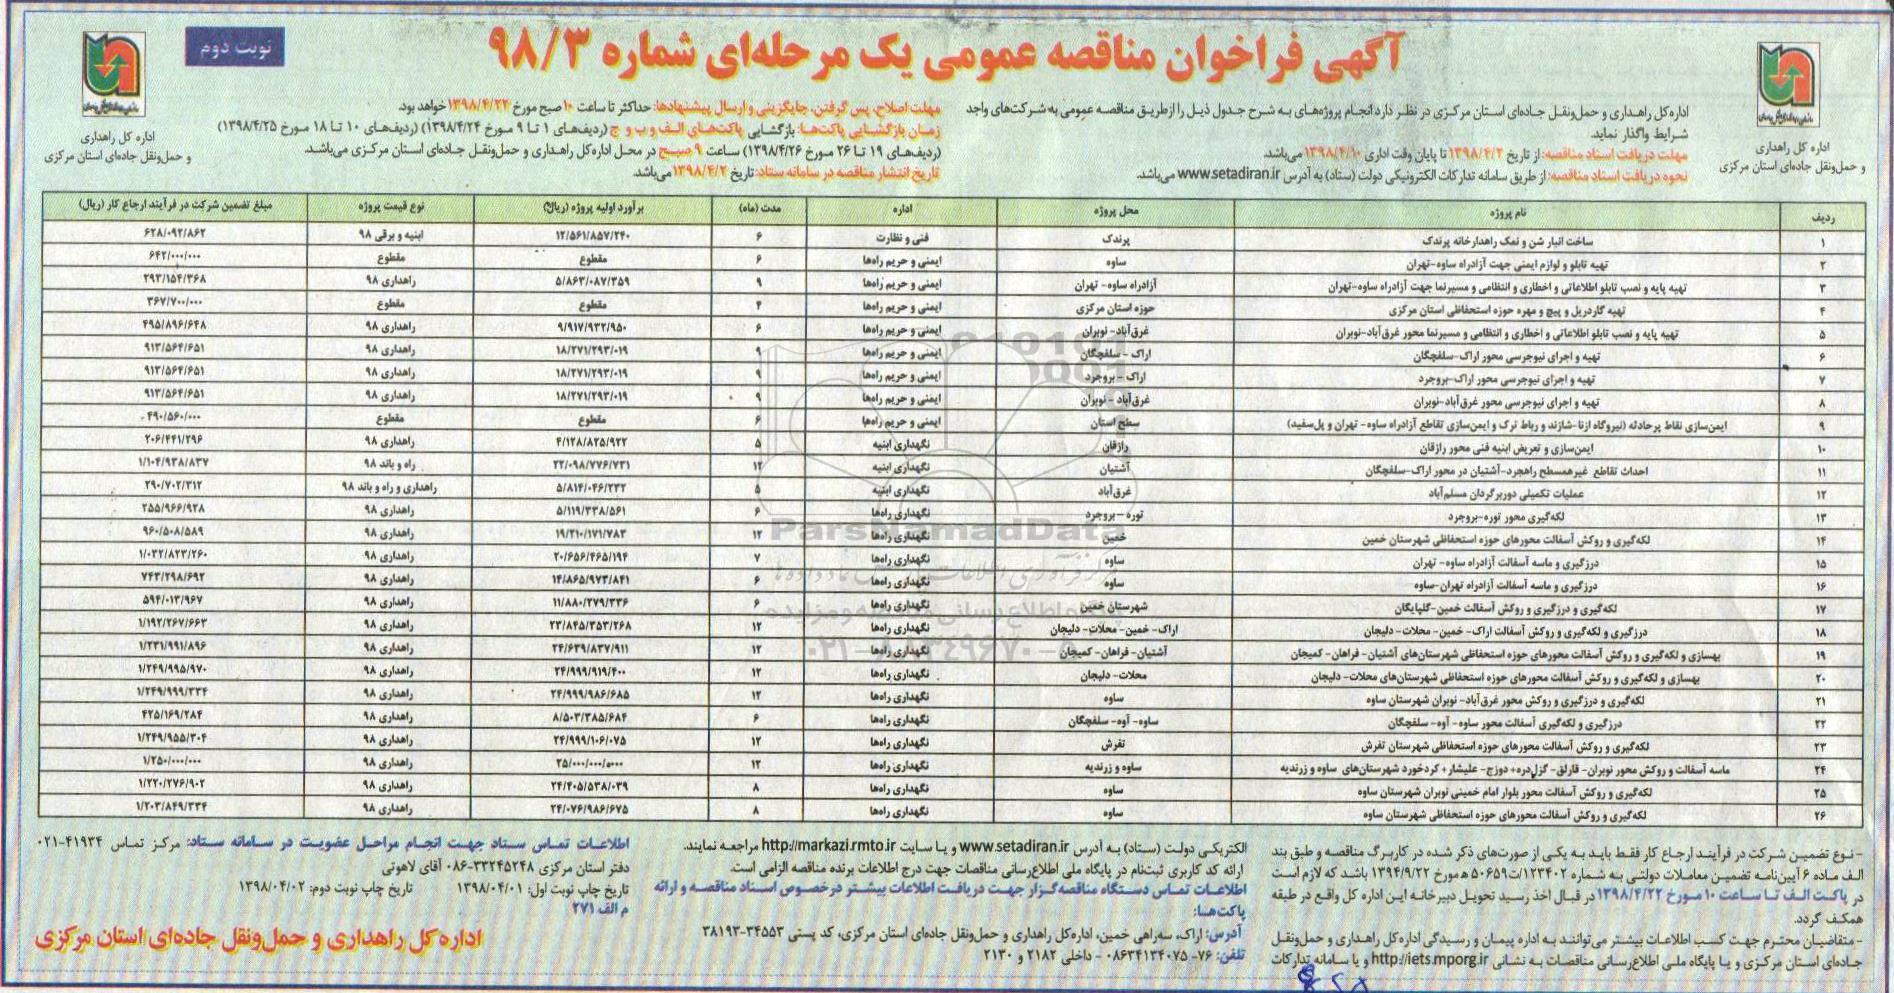 آگهی فراخوان مناقصه عمومی یک مرحله‌ای شماره ۹۸/۳
نوبت دوم
اداره کل راهداری
و حمل‌ونقل جاده‌ای استان مرکزی
اداره‌کل راهداری و حمل‌ونقل جاده‌ای استان مرکزی در نظر دارد انجام پروژه‌های به شرح جدول ذیل را ازطریق مناقصه عمومی به شرکت‌های واجد
شرایط واگذار نماید.
مهلت دریافت اسناد مناقصه: از تاریخ ۱۳۹۸/۴/۲ تا پایان وقت اداری ۱۳۹۸/۴/۱۰ می‌باشد.
نحوه دریافت اسناد مناقصه: از طریق سامانه تدارکات الکترونیکی دولت (ستاد) به آدرس www.setadiran.ir می‌باشد.
مهلت اصلاح، پس گرفتن، جایگزینی و ارسال پیشنهادها: حداکثر تا ساعت ۱۰ صبح مورخ ۱۳۹۸/۴/۲۲ خواهد بود.
زمان بازگشایی پاکت‌ها: بازگشایی پاکت‌های الف و ب و ج (ردیف‌های ۱ تا ۹ مورخ ۱۳۹۸/۴/۲۴) (ردیف‌های ۱۰ تا ۱۸ مورخ ۱۳۹۸/۴/۲۵)
(ردیف‌های ۱۹ تا ۲۶ مورخ ۱۳۹۸/۴/۲۶) ساعت ۹ صبح در محل اداره‌کل راهداری و حمل‌ونقل جاده‌ای استان مرکزی می‌باشد.
تاریخ انتشار مناقصه در سامانه ستاد: تاریخ ۱۳۹۸/۴/۲ می‌باشد.
اداره کل راهداری
و حمل‌ونقل جاده‌ای استان مرکزی
ردیف نام پروژه محل پروژه اداره مدت (ماه) برآورد اولیه پروژه (ریال) نوع قیمت پروژه مبلغ تضمین شرکت در فرآیند ارجاع کار (ریال)
۱ ساخت انبار شن و نمک راهدارخانه پرندک پرندک فنی و نظارت ۶ ۱۲/۵۶۱/۸۵۷/۲۴۰ ابنیه و برقی ۹۸ ۶۲۸/۰۹۲/۸۶۲
۲ تهیه تابلو و لوازم ایمنی جهت آزادراه ساوه-تهران ساوه ایمنی و حریم راه‌ها ۶ مقطوع مقطوع ۶۴۲/۰۰۰/۰۰۰
۳ تهیه پایه و نصب تابلو اطلاعاتی و اخطاری و انتظامی و مسیرنما جهت آزادراه ساوه-تهران آزادراه ساوه- تهران ایمنی و حریم راه‌ها ۹ ۵/۸۶۳/۰۸۷/۳۵۹ راهداری ۹۸ ۲۹۳/۱۵۴/۳۶۸
۴ تهیه گاردریل و پیچ و مهره حوزه استحفاظی استان مرکزی حوزه استان مرکزی ایمنی و حریم راه‌ها ۴ مقطوع مقطوع ۳۶۷/۷۰۰/۰۰۰
۵ تهیه پایه و نصب تابلو اطلاعاتی و اخطاری و انتظامی و مسیرنما محور غرق‌آباد-نوبران غرق‌آباد- نوبران ایمنی و حریم راه‌ها ۶ ۹/۹۱۷/۹۳۲/۹۵۰ راهداری ۹۸ ۴۹۵/۸۹۶/۶۴۸
۶ تهیه و اجرای نیوجرسی محور اراک-سلفچگان اراک - سلفچگان ایمنی و حریم راه‌ها ۹ ۱۸/۲۷۱/۲۹۳/۰۱۹ راهداری ۹۸ ۹۱۳/۵۶۴/۶۵۱
۷ تهیه و اجرای نیوجرسی محور اراک-بروجرد اراک - بروجرد ایمنی و حریم راه‌ها ۹ ۱۸/۲۷۱/۲۹۳/۰۱۹ راهداری ۹۸ ۹۱۳/۵۶۴/۶۵۱
۸ تهیه و اجرای نیوجرسی محور غرق‌آباد-نوبران غرق‌آباد - نوبران ایمنی و حریم راه‌ها ۹ ۱۸/۲۷۱/۲۹۳/۰۱۹ راهداری ۹۸ ۹۱۳/۵۶۴/۶۵۱
۹ ایمن‌سازی نقاط پرحادثه (نیروگاه ازنا-شازند و رباط ترک و ایمن‌سازی تقاطع آزادراه ساوه- تهران و پل‌سفید) سطح استان ایمنی و حریم راه‌ها ۶ مقطوع مقطوع ۴۹۰/۵۶۰/۰۰۰
۱۰ ایمن‌سازی و تعریض ابنیه فنی محور رازقان رازقان نگهداری ابنیه ۵ ۴/۱۲۸/۸۲۵/۹۲۲ راهداری ۹۸ ۲۰۶/۴۴۱/۲۹۶
۱۱ احداث تقاطع غیرهمسطح راهجرد-آشتیان در محور اراک-سلفچگان آشتیان نگهداری ابنیه ۱۲ ۲۲/۰۹۸/۷۷۶/۷۳۱ راه و باند ۹۸ ۱/۱۰۴/۹۳۸/۸۳۷
۱۲ عملیات تکمیلی دوربرگردان مسلم‌آباد غرق‌آباد نگهداری ابنیه ۵ ۵/۸۱۴/۰۴۶/۲۳۲ راهداری و راه و باند ۹۸ ۲۹۰/۷۰۲/۳۱۲
۱۳ لکه‌گیری محور توره-بروجرد توره - بروجرد نگهداری راه‌ها ۶ ۵/۱۱۹/۳۳۸/۵۶۱ راهداری ۹۸ ۲۵۵/۹۶۶/۹۲۸
۱۴ لکه‌گیری و روکش آسفالت محورهای حوزه استحفاظی شهرستان خمین خمین نگهداری راه‌ها ۱۲ ۱۹/۲۱۰/۱۷۱/۷۸۳ راهداری ۹۸ ۹۶۰/۵۰۸/۵۸۹
۱۵ درزگیری و ماسه آسفالت آزادراه ساوه- تهران ساوه نگهداری راه‌ها ۷ ۲۰/۶۵۶/۴۶۵/۱۹۴ راهداری ۹۸ ۱/۰۳۲/۸۲۳/۲۶۰
۱۶ درزگیری و ماسه آسفالت آزادراه تهران-ساوه ساوه نگهداری راه‌ها ۶ ۱۴/۸۶۵/۹۷۳/۸۴۱ راهداری ۹۸ ۷۴۳/۲۹۸/۶۹۲
۱۷ لکه‌گیری و درزگیری و روکش آسفالت خمین-گلپایگان شهرستان خمین نگهداری راه‌ها ۶ ۱۱/۸۸۰/۲۷۹/۳۳۶ راهداری ۹۸ ۵۹۴/۰۱۳/۹۶۷
۱۸ درزگیری و لکه‌گیری و روکش آسفالت اراک- خمین- محلات- دلیجان اراک- خمین- محلات- دلیجان نگهداری راه‌ها ۱۲ ۲۳/۸۴۵/۳۵۳/۲۶۸ راهداری ۹۸ ۱/۱۹۲/۲۶۷/۶۶۳
۱۹ بهسازی و لکه‌گیری و روکش آسفالت محورهای حوزه استحفاظی شهرستان‌های آشتیان- فراهان- کمیجان آشتیان- فراهان- کمیجان نگهداری راه‌ها ۱۲ ۲۴/۶۳۹/۸۳۷/۹۱۱ راهداری ۹۸ ۱/۲۳۱/۹۹۱/۸۹۶
۲۰ بهسازی و لکه‌گیری و روکش آسفالت محورهای حوزه استحفاظی شهرستان‌های محلات- دلیجان محلات- دلیجان نگهداری راه‌ها ۱۲ ۲۴/۹۹۹/۹۱۹/۴۰۰ راهداری ۹۸ ۱/۲۴۹/۹۹۵/۹۷۰
۲۱ لکه‌گیری و درزگیری و روکش محور غرق‌آباد- نوبران شهرستان ساوه ساوه نگهداری راه‌ها ۱۲ ۲۴/۹۹۹/۹۸۶/۶۸۵ راهداری ۹۸ ۱/۲۴۹/۹۹۹/۳۳۴
۲۲ درزگیری و لکه‌گیری آسفالت محور ساوه- آوه- سلفچگان ساوه- آوه- سلفچگان نگهداری راه‌ها ۶ ۸/۵۰۳/۳۸۵/۶۸۴ راهداری ۹۸ ۴۲۵/۱۶۹/۲۸۴
۲۳ لکه‌گیری و روکش آسفالت محورهای حوزه استحفاظی شهرستان تفرش تفرش نگهداری راه‌ها ۱۲ ۲۴/۹۹۹/۱۰۶/۰۷۵ راهداری ۹۸ ۱/۲۴۹/۹۵۵/۳۰۴
۲۴ ماسه آسفالت و روکش محور نوبران- قارلق- گزل‌دره+ دوزج- علیشار+ کردخورد شهرستان‌های ساوه و زرندیه ساوه و زرندیه نگهداری راه‌ها ۱۲ ۲۵/۰۰۰/۰۰۰/۰۰۰ راهداری ۹۸ ۱/۲۵۰/۰۰۰/۰۰۰
۲۵ لکه‌گیری و روکش آسفالت محور بلوار امام خمینی نوبران شهرستان ساوه ساوه نگهداری راه‌ها ۸ ۲۴/۴۰۵/۵۳۸/۰۳۹ راهداری ۹۸ ۱/۲۲۰/۲۷۶/۹۰۲
۲۶ لکه‌گیری و روکش آسفالت محورهای حوزه استحفاظی شهرستان ساوه ساوه نگهداری راه‌ها ۸ ۲۴/۰۷۶/۹۸۶/۶۷۵ راهداری ۹۸ ۱/۲۰۳/۸۴۹/۳۳۴
ParsNamadData
- نوع تضمین شرکت در فرآیند ارجاع کار فقط باید به یکی از صورت‌های ذکر شده در کاربرگ مناقصه و طبق بند
الف ماده ۶ آیین‌نامه تضمین معاملات دولتی به شماره ۱۲۳۴۰۲/ت۵۰۶۵۹ ه مورخ ۱۳۹۴/۹/۲۲ باشد که لازم است
در پاکت الف تا ساعت ۱۰ مورخ ۱۳۹۸/۴/۲۲ در قبال اخذ رسید تحویل دبیرخانه این اداره کل واقع در طبقه
همکف گردد.
- متقاضیان محترم جهت کسب اطلاعات بیشتر می‌توانند به اداره پیمان و رسیدگی اداره‌کل راهداری و حمل‌ونقل
جاده‌ای استان مرکزی و یا پایگاه ملی اطلاع‌رسانی مناقصات به نشانی http://iets.mporg.ir و یا سامانه تدارکات
الکتریکی دولت (ستاد) به آدرس www.setadiran.ir و یا سایت http://markazi.rmto.ir مراجعه نمایند.
ارائه کد کاربری ثبت‌نام در پایگاه ملی اطلاع‌رسانی مناقصات جهت درج اطلاعات برنده مناقصه الزامی است.
اطلاعات تماس دستگاه مناقصه‌گزار جهت دریافت اطلاعات بیشتر درخصوص اسناد مناقصه و ارائه
پاکت‌ها:
آدرس: اراک، سه‌راهی خمین، اداره‌کل راهداری و حمل‌ونقل جاده‌ای استان مرکزی، کد پستی ۳۴۵۵۳-۳۸۱۹۳
تلفن: ۷۶-۰۸۶۳۴۱۳۴۰۷۵ - داخلی ۲۱۸۲ و ۲۱۳۰
اطلاعات تماس ستاد جهت انجام مراحل عضویت در سامانه ستاد: مرکز تماس ۴۱۹۳۴-۰۲۱
دفتر استان مرکزی ۳۳۲۴۵۲۴۸-۰۸۶ آقای لاهوتی
تاریخ چاپ نوبت اول: ۱۳۹۸/۰۴/۰۱ تاریخ چاپ نوبت دوم: ۱۳۹۸/۰۴/۰۲
م الف ۲۷۱
اداره کل راهداری و حمل‌ونقل جاده‌ای استان مرکزی